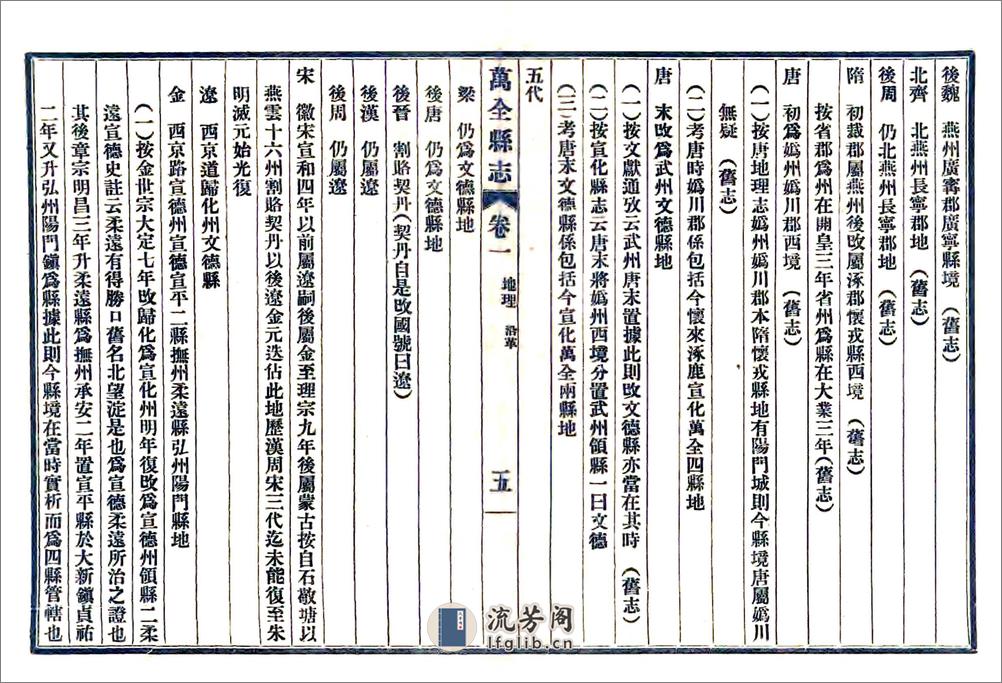 後魏　燕州廣甯郡廣寧縣境　（舊志）
北齊　北燕州長寧郡地　（舊志）
後周　仍北燕州長寧郡地　（舊志）
隋　初裁郡屬燕州後改屬涿郡懷戎縣西境　（舊志）
按省郡爲州在開皇三年省州爲縣在大業三年（舊志）
唐　初爲嬀州嬀川郡西境　（舊志）
（一）按唐地理志嬀州嬀川郡本隋懷戎縣地有陽門城則今縣境唐屬嬀川
無疑　（舊志）
（二）考唐時嬀川郡係包括今懷來涿鹿宣化萬全四縣地
唐　末改爲武州文德縣地
（一）按文獻通攷云武州唐末置據此則改文德縣亦當在其時　（舊志）
（二）按宣化縣志云唐末將嬀州西境分置武州領縣一曰文德
（三）考唐末文德縣係包括今宣化萬全兩縣地
五代
萬全縣志　卷一　地理　沿革　五
梁　仍爲文德縣地
後唐　仍爲文德縣地
後晉　割賂契丹（契丹自是改國號曰遼）
後漢　仍屬遼
後周　仍屬遼
宋　徽宋宣和四年以前屬遼嗣後屬金至理宗九年後屬蒙古按自石敬塘以
燕雲十六州割賂契丹以後遼金元迭佔此地歷漢周宋三代迄未能復至朱
明滅元始光復
遼　西京道歸化州文德縣
金　西京路宣德州宣德宣平二縣撫州柔遠縣弘州陽門縣地
（一）按金世宗大定七年改歸化爲宣化州明年復改爲宣德州領縣二柔
遠宣德史註云柔遠有得勝口舊名北望淀是也爲宣德柔遠所治之證也
其後章宗明昌三年升柔遠縣爲撫州承安二年置宣平縣於大新鎮貞祐
二年又升弘州陽門鎮爲縣據此則今縣境在當時實析而爲四縣管轄也
流芳阁
lfglib.cn